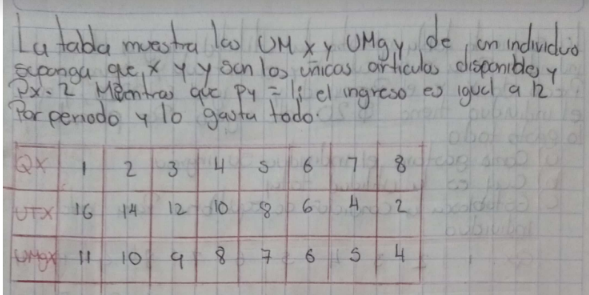 La tabla muestra las UM x y UMgy de un individuo
suponga que, x y y son los únicas articulos disponibles y
Px = 2 Mientras que Py = 1; el ingreso es igual a 12
Por periodo y lo gasta todo.
QX 1 2 3 4 5 6 7 8
UTX 16 14 12 10 8 6 4 2
UMgX 11 10 9 8 7 6 5 4